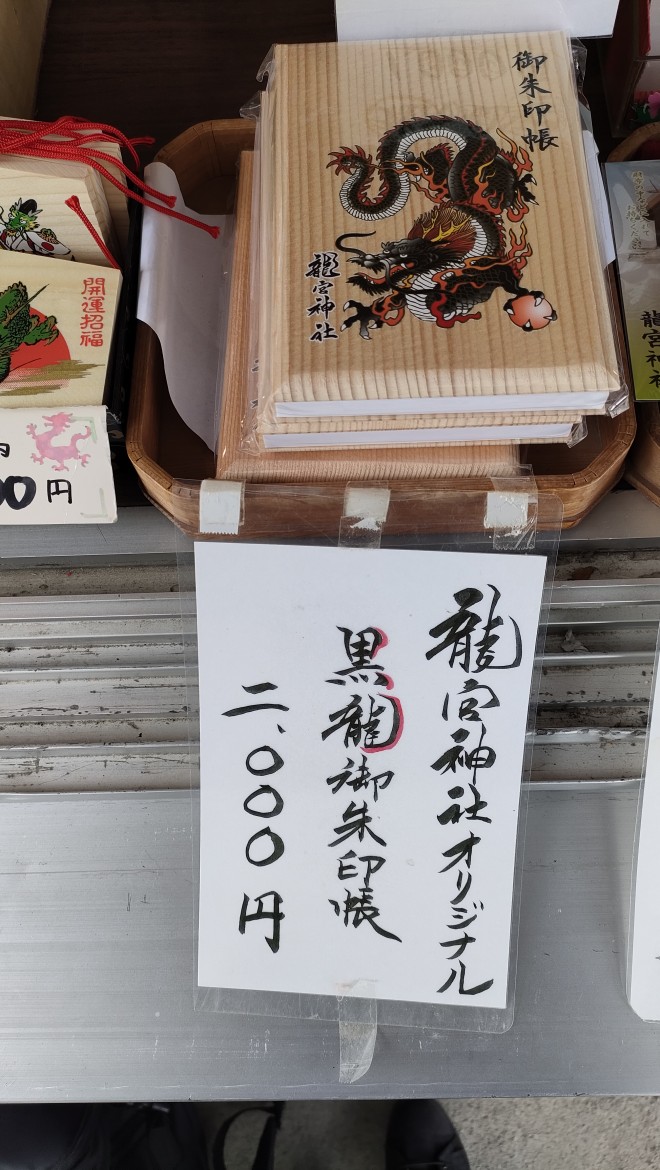 御朱印帳
龍宮神社
開運招福
円
龍宮神社
龍宮神社オリジナル
黒龍御朱印帳
二、〇〇〇円